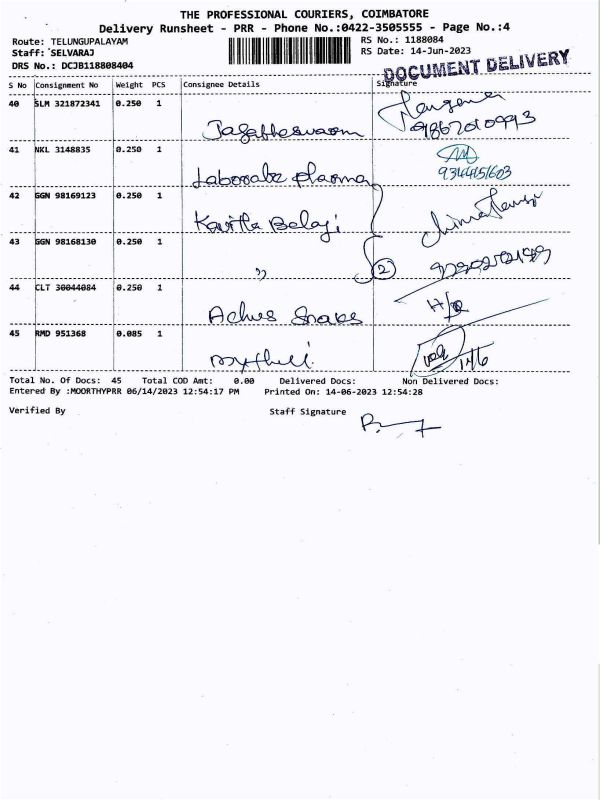 THE PROFESSIONAL COURIERS, COIMBATORE
Delivery Runsheet - PRR - Phone No.:0422-3505555 - Page No.:4
Route: TELUNGUPALAYAM RS No.: 1188084
Staff: SELVARAJ RS Date: 14-Jun-2023
DRS No.: DCJB118808404
DOCUMENT DELIVERY
S No Consignment No Weight PCS Consignee Details Signature
40 SLM 321872341 0.250 1
41 NKL 3148835 0.250 1
9344451603
42 GGN 98169123 0.250 1
Kavitha Balaji
43 GGN 98168130 0.250 1
" 2
44 CLT 30044084 0.250 1
45 RMD 951368 0.085 1
14/6
Total No. Of Docs: 45 Total COD Amt: 0.00 Delivered Docs: Non Delivered Docs:
Entered By :MOORTHYPRR 06/14/2023 12:54:17 PM Printed On: 14-06-2023 12:54:28
Verified By Staff Signature